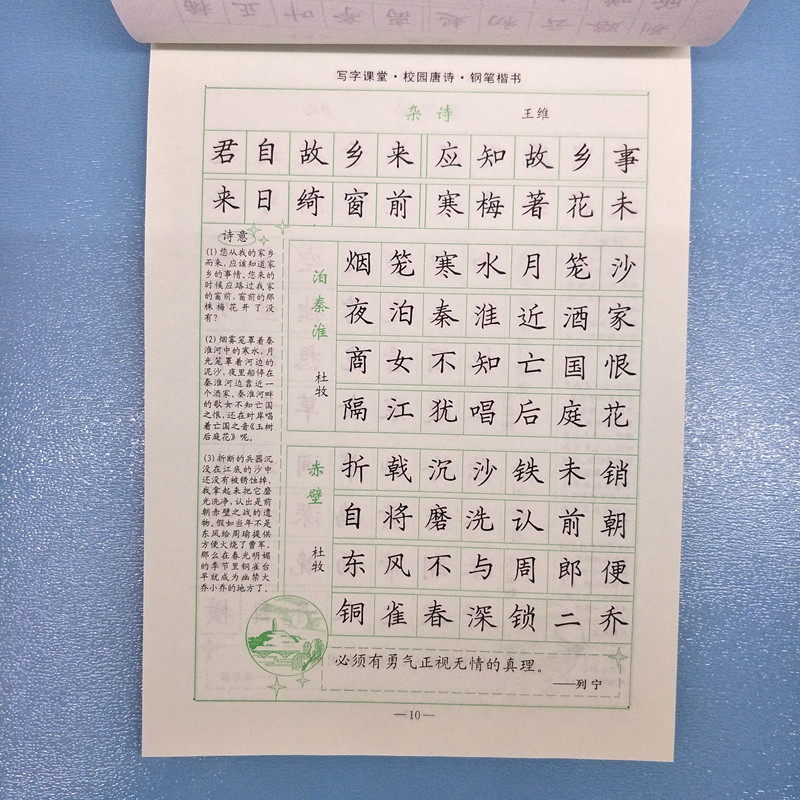 写字课堂·校园唐诗·钢笔楷书
杂诗 王维
君自故乡来应知故乡事
来日绮窗前寒梅著花未
诗意
(1)您从我的家乡
而来,应该知道家
乡的事情。您来的
时候应路过我家
的窗前,窗前的那
株梅花开了没
有?
(2)烟雾笼罩着秦
淮河中的寒水,月
光笼罩着河边的
泥沙,夜里船停在
秦淮河边靠近一
个酒家,秦淮河畔
的歌女不知亡国
之恨,还在对岸唱
着亡国之音《玉树
后庭花》呢。
(3)折断的兵器沉
没在江底的沙中
还没有被锈蚀掉,
我拿起来把它磨
光洗净,认出是前
朝赤壁之战的遗
物。假如当年不是
东风给周瑜提供
方便火烧了曹军,
那么在春光明媚
的季节里铜雀台
早就成为幽禁大
乔小乔的地方了。
泊秦淮
杜牧
烟笼寒水月笼沙
夜泊秦淮近酒家
商女不知亡国恨
隔江犹唱后庭花
赤壁
杜牧
折戟沉沙铁未销
自将磨洗认前朝
东风不与周郎便
铜雀春深锁二乔
必须有勇气正视无情的真理。
——列宁
—10—